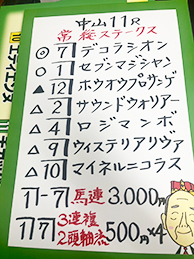 中山11R
常総ステークス
◎ 7 デコラシオン
○ 1 セブンマジシャン
▲ 12 ホウオウプロサンゲ
△ 2 サウンドウォリアー
△ 4 ロジマンボ
△ 9 ウィステリアリヴァ
△ 10 マイネルニコラス
11-7 馬連 3.000円
11 7 3連複 2頭軸流 500円×4